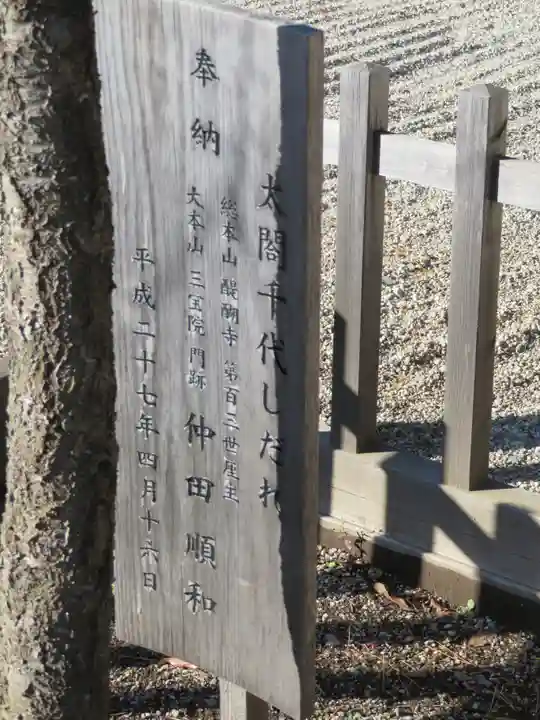 太閤千代しだれ
総本山 醍醐寺 第百三世座主
大本山 三宝院門跡 仲田順和
奉納
平成二十七年四月十六日